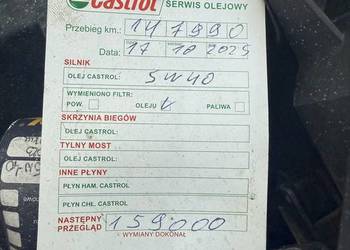 Castrol SERWIS OLEJOWY
Przebieg km.: 147990
Data: 17 10 2025
SILNIK
OLEJ CASTROL: 5W40
WYMIENIONO FILTR:
POW. OLEJU V PALIWA
SKRZYNIA BIEGÓW
OLEJ CASTROL:
TYLNY MOST
OLEJ CASTROL:
INNE PŁYNY
PŁYN HAM. CASTROL
PŁYN CHŁ. CASTROL
NASTĘPNY
PRZEGLĄD 159000
WYMIANY DOKONAŁ